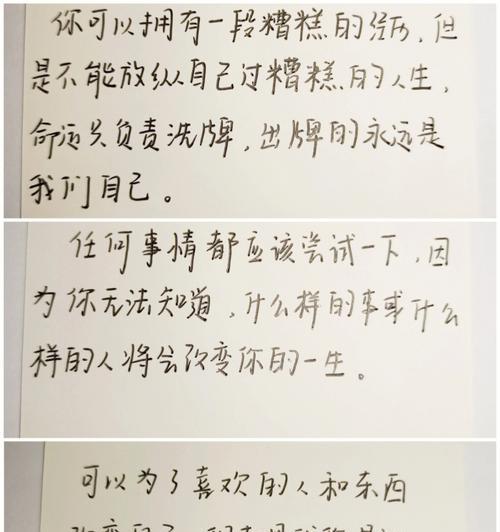 你可以拥有一段糟糕的经历，但
是不能放纵自己过糟糕的人生，
命运只负责洗牌，出牌的永远是
我们自己。
任何事情都应该尝试一下，因
为你无法知道，什么样的事或什么
样的人将会改变你的一生。
可以为了喜欢的人和东西